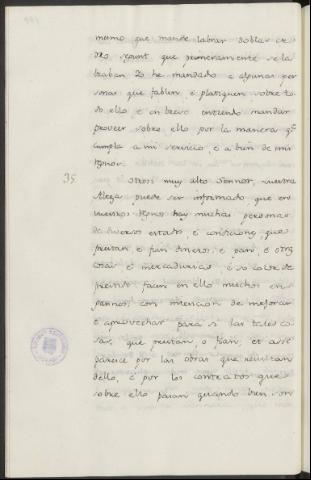 mismo que mande labrar doblas ce
dro segunt que primeramente se la
braban Yo he mandado a algunas per
sonas que fablen, e platiquen sobre to
do ello, e en breve entiendo mandar
proveer sobre ello por la manera q.e
cumpla a mi servicio, e a bien de mis
Regnos.
35 Otrosi muy alto Sennor, vuestra
Alteza puede ser informado, que en
vuestros Regnos hay muchas personas
de diversos estados, e condiciones, que
prestan, e fian dineros, e pan, e otras
cosas e mercadurias e so color de
prestido facen en ello muchos en
gannos, con intencion de mejorar
e aprovechar para si las tales co
sas, que prestan, o fian, et asi
parece por las obras que resultan
dello, e por los contratos que
sobre ello pasan quando bien son